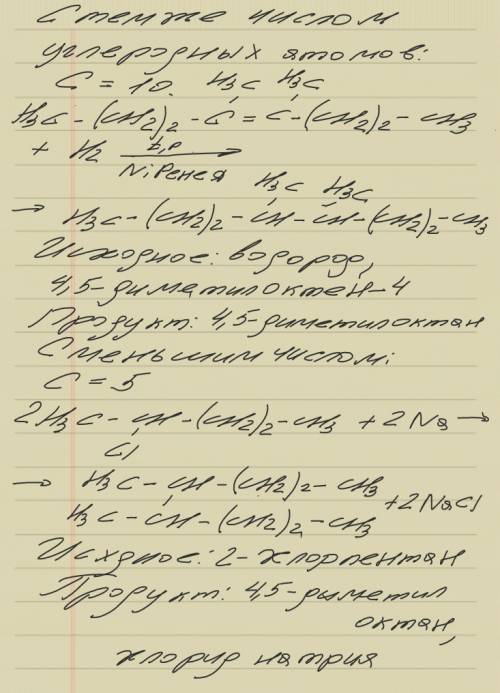 С тем же числом
углеродных атомов:
C = 10. H3C H3C
H3C - (CH2)2 - C = C - (CH2)2 - CH3
+ H2 t,p →
Ni Ренея
H3C H3C
→ H3C - (CH2)2 - CH - CH - (CH2)2 - CH3
Исходное: водород,
4,5-диметилоктен-4
Продукт: 4,5-диметилоктан
С меньшим числом:
C = 5
2H3C - CH - (CH2)2 - CH3 + 2Na →
Cl
→ H3C - CH - (CH2)2 - CH3
+ 2NaCl
H3C - CH - (CH2)2 - CH3
Исходное: 2-хлорпентан
Продукт: 4,5-дыметил
октан,
хлорид натрия